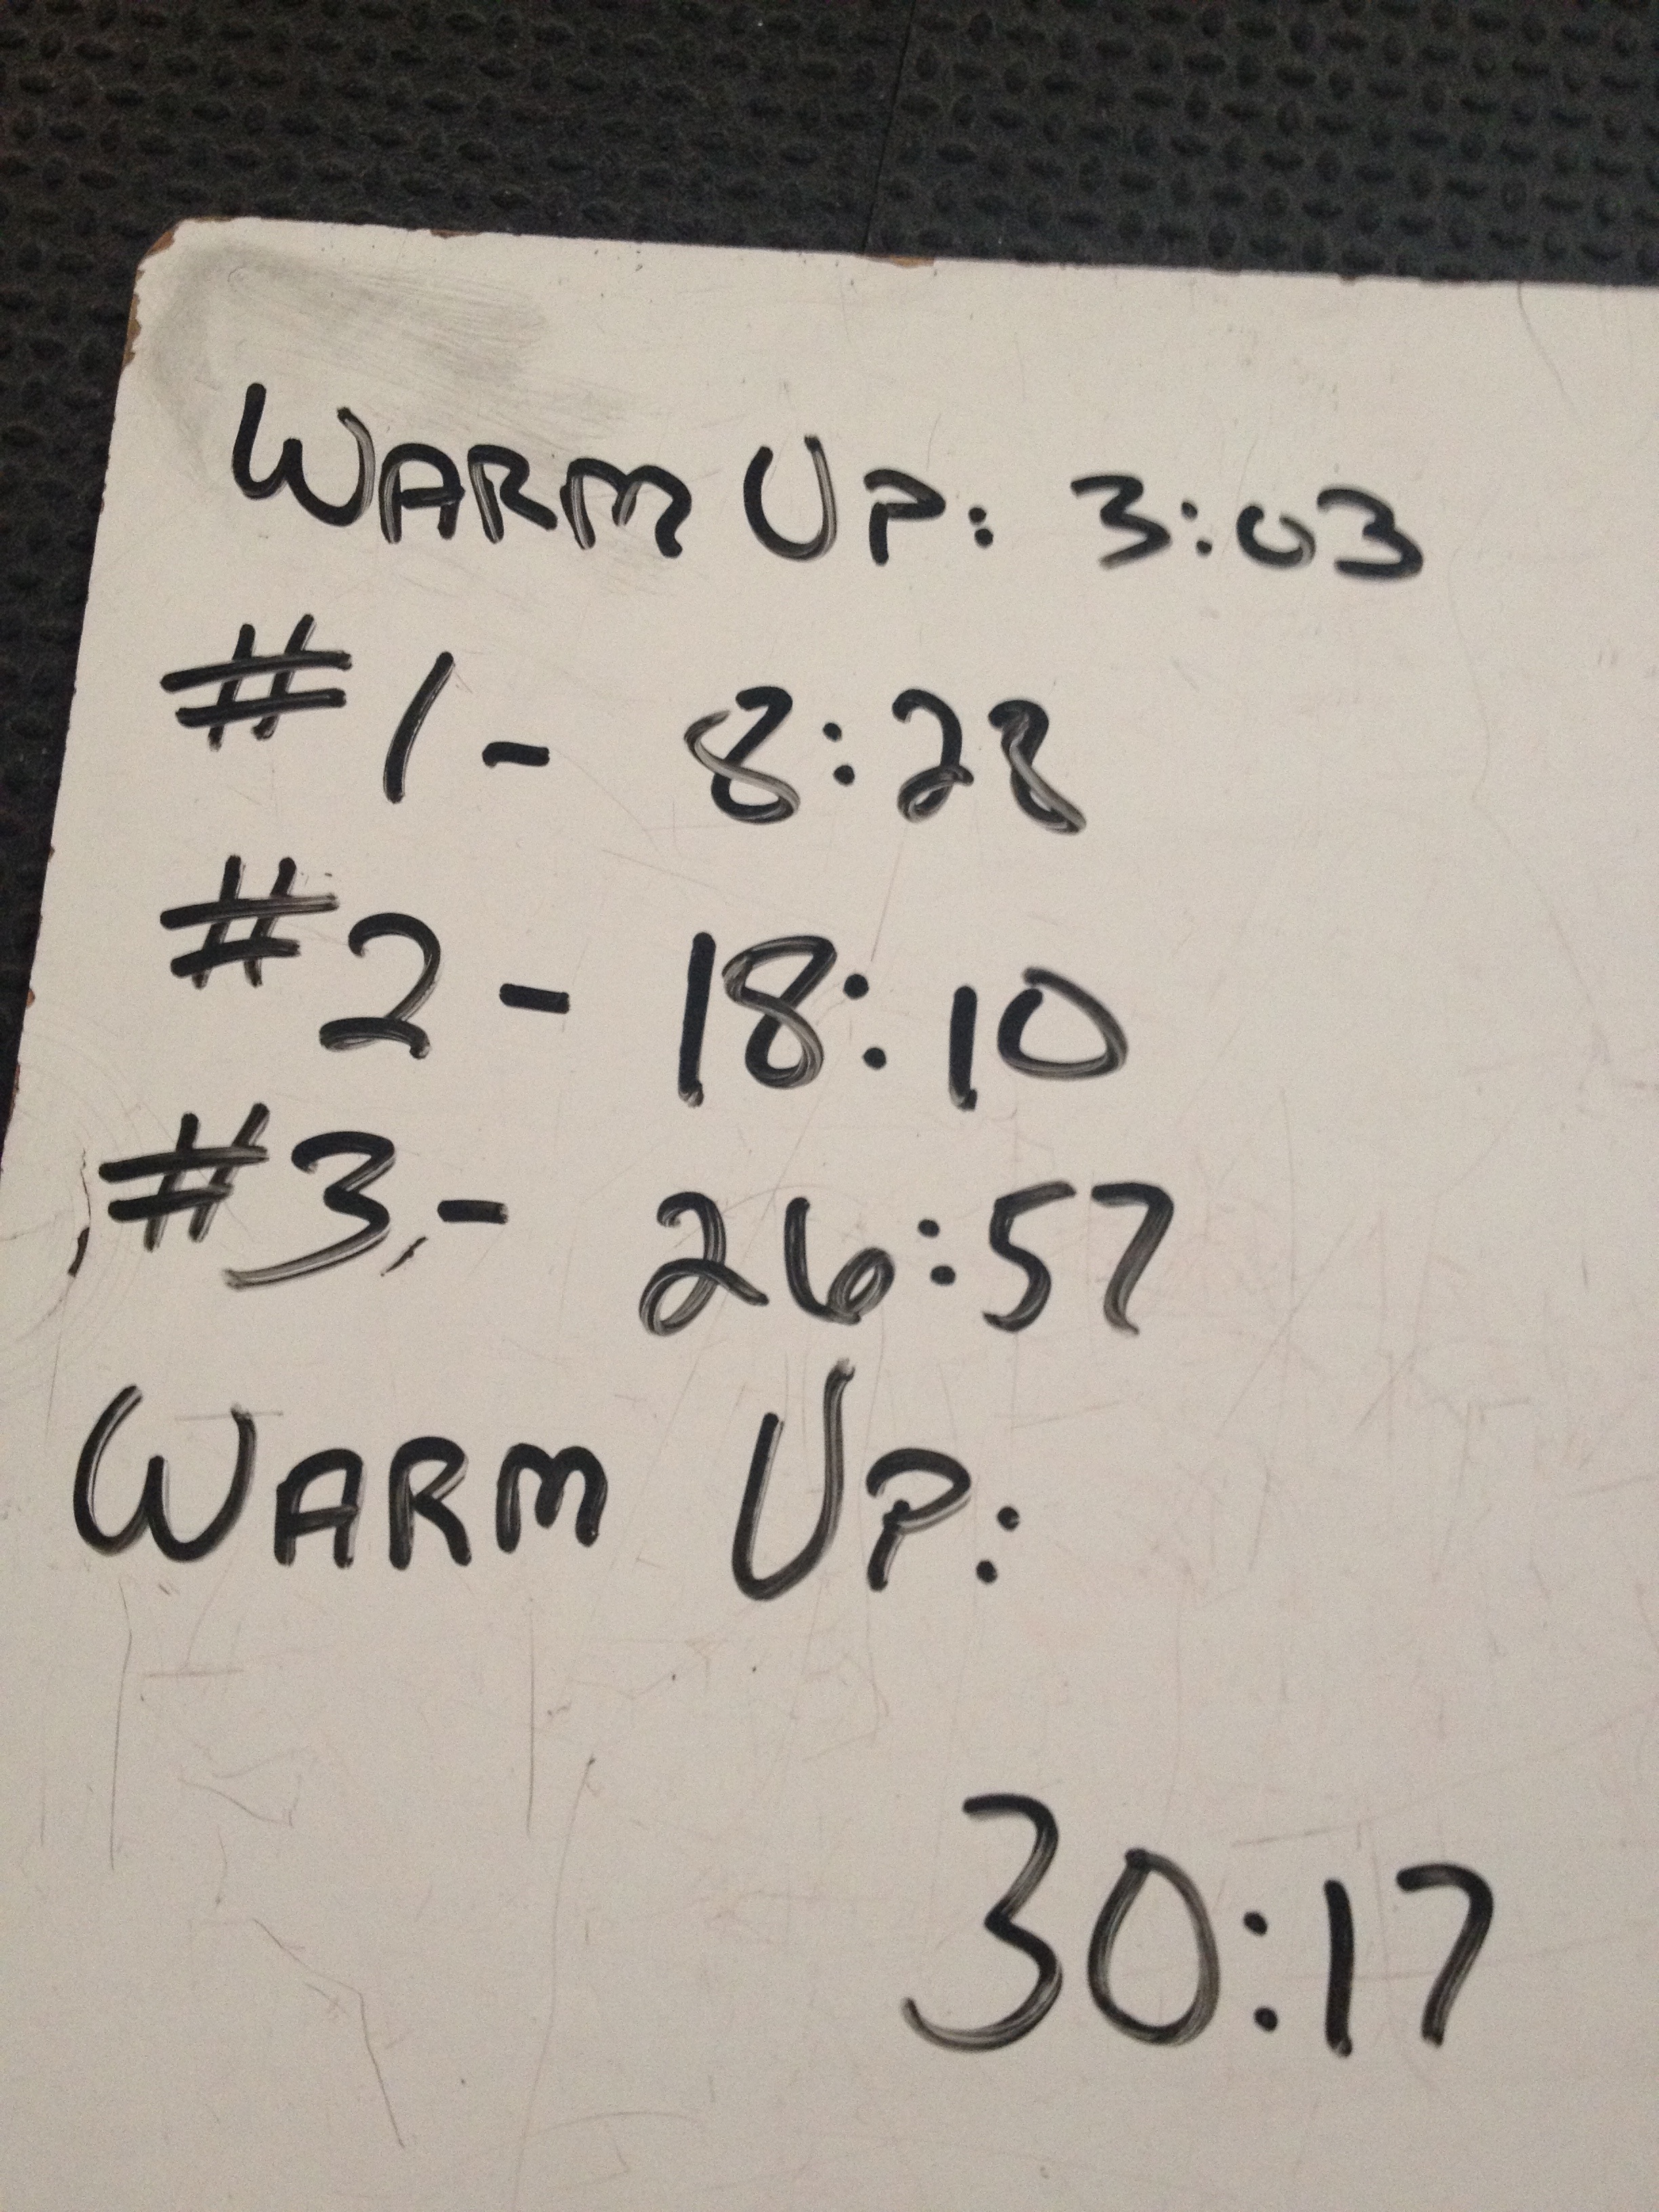 WARM UP: 3:03
#1- 8:28
#2- 18:10
#3- 26:57
WARM UP:
30:17